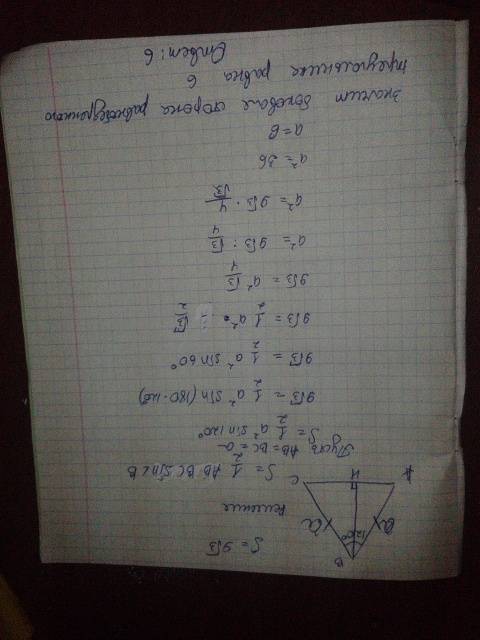 S = 9√3
B
120°
a a
A H C
Решение
S = 1/2 AB BC sin∠B
Пусть AB = BC = a
S = 1/2 a² sin 120°
9√3 = 1/2 a² sin (180 - 120)
9√3 = 1/2 a² sin 60°
9√3 = 1/2 a² · √3/2
9√3 = a² √3/4
a² = 9√3 : √3/4
a² = 9√3 · 4/√3
a² = 36
a = 6
значит боковая сторона равнобедренного
треугольника равна 6
Ответ: 6